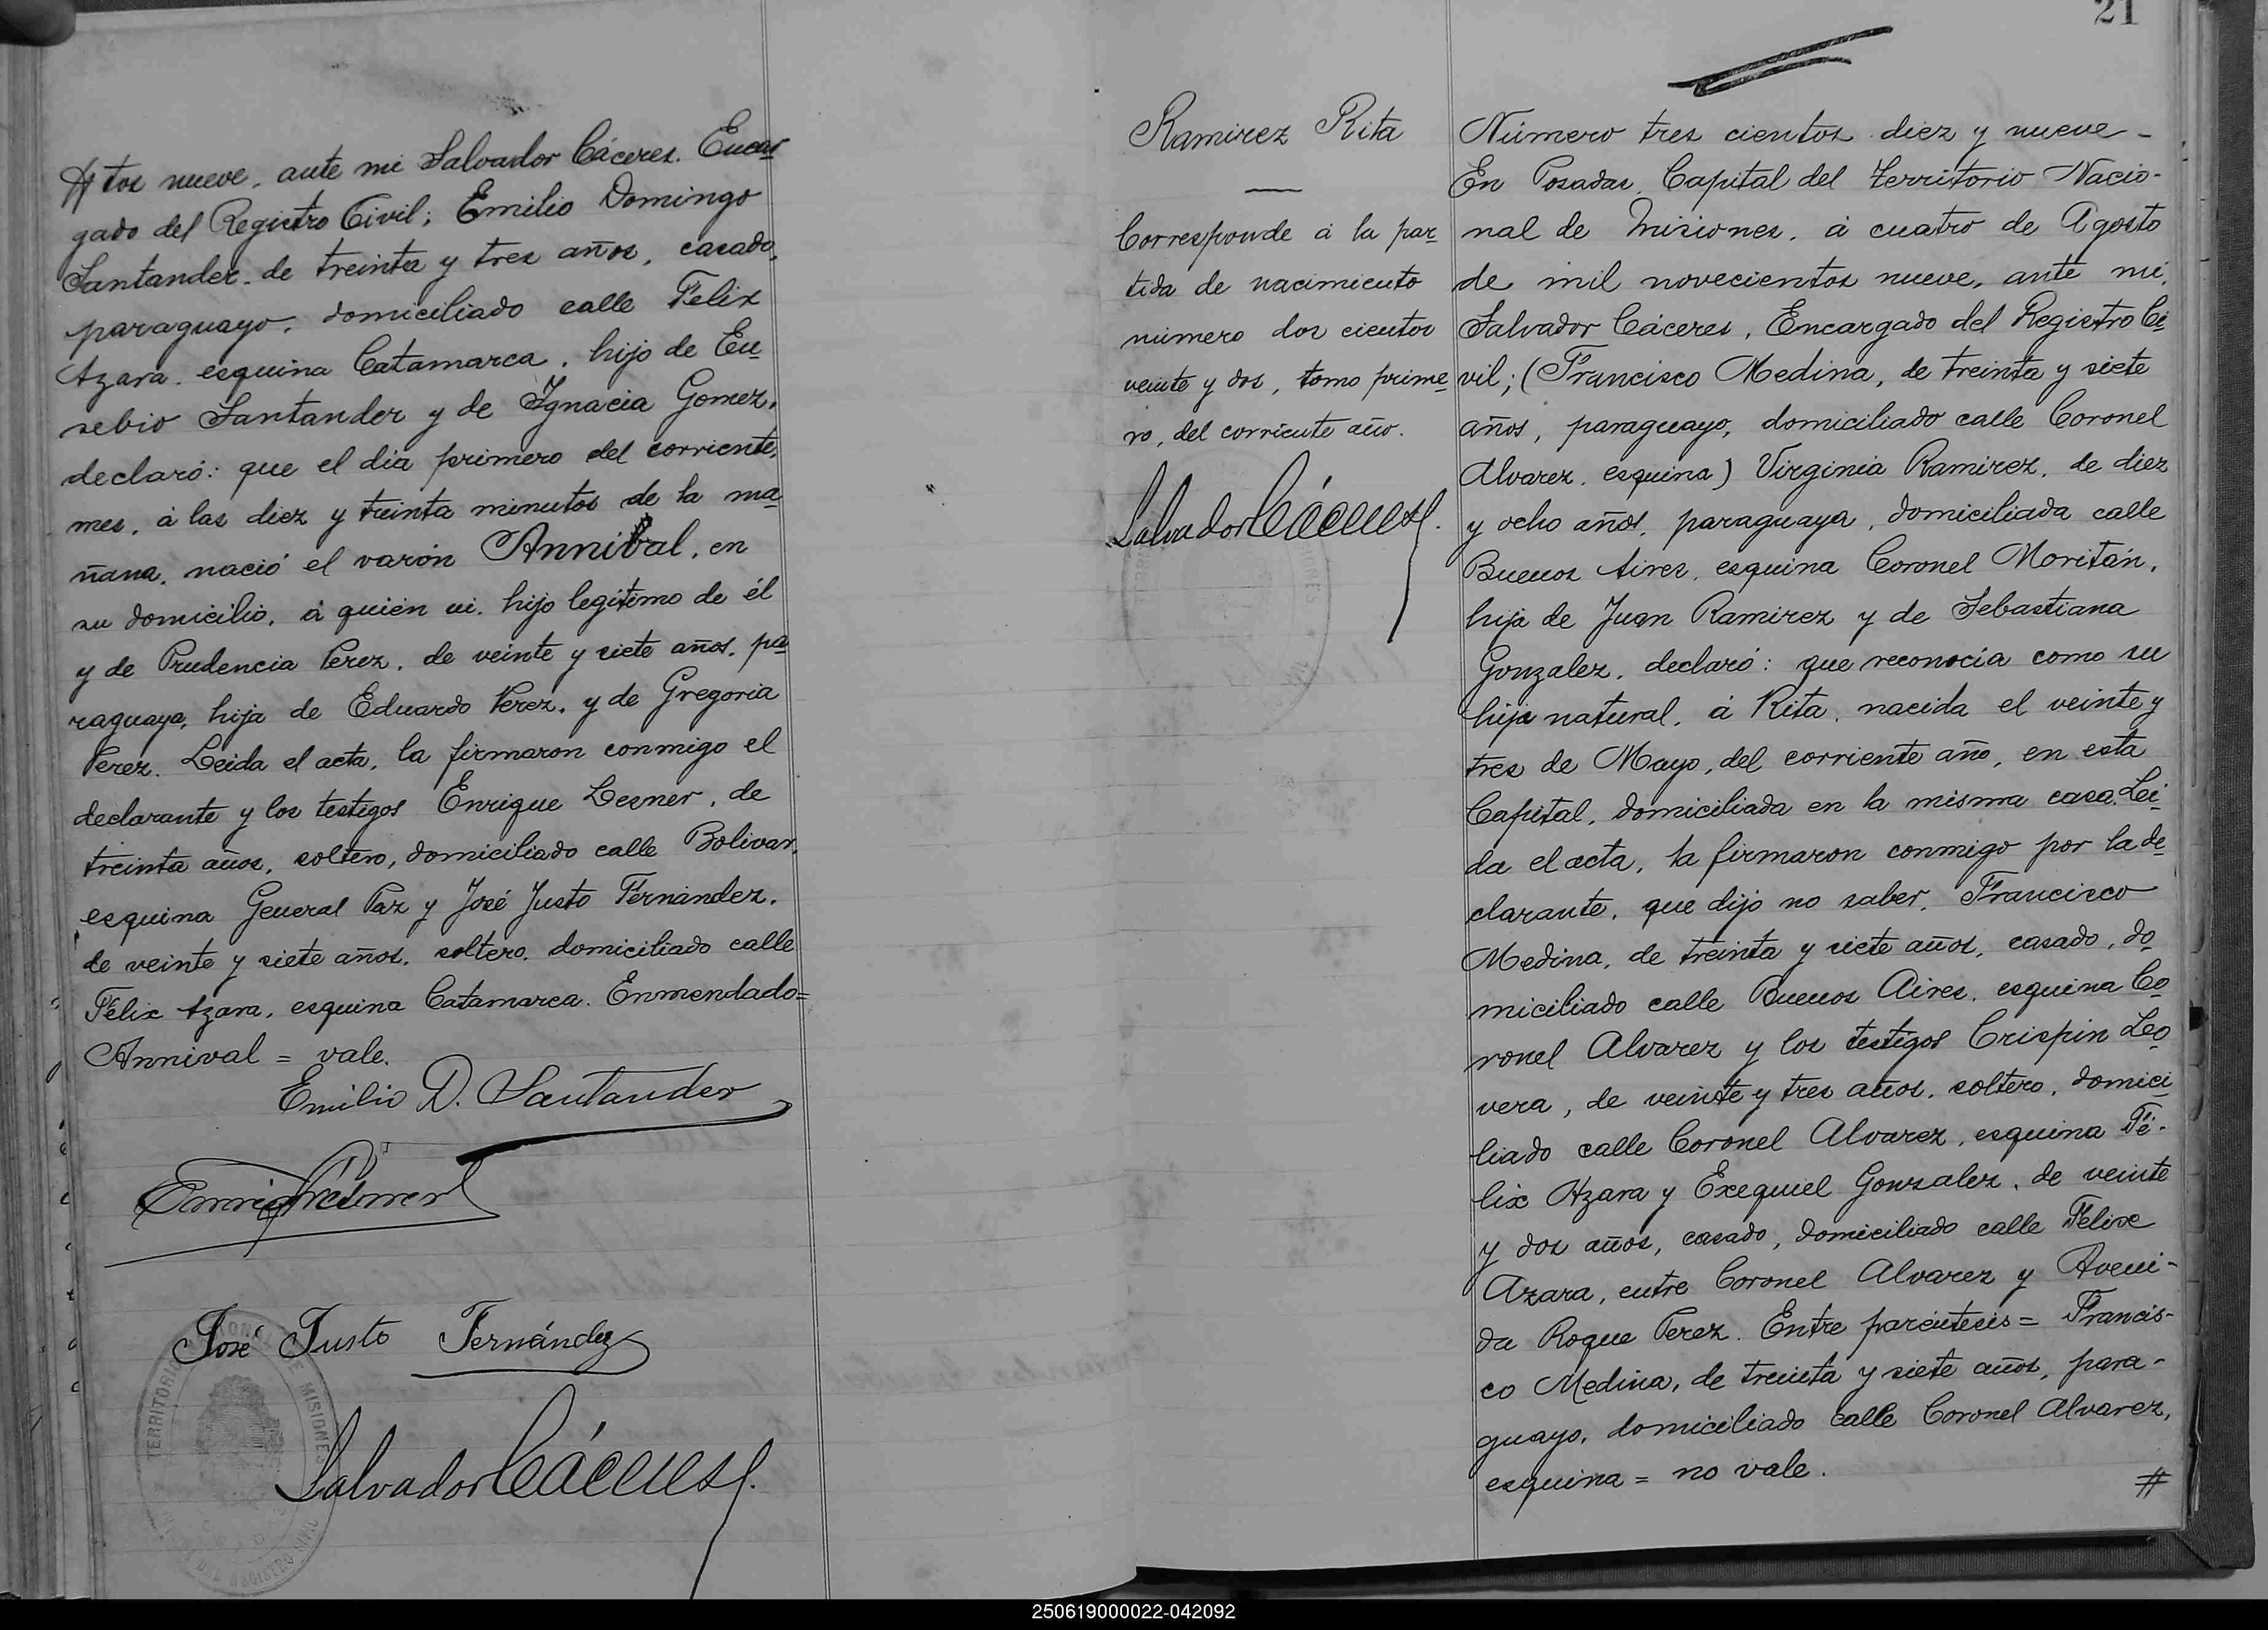 # tos nueve, ante mi Salvador Cáceres. Encar
gado del Registro Civil; Emilio Domingo
Santander, de treinta y tres años, casado,
paraguayo, domiciliado calle Felix
Azara, esquina Catamarca, hijo de Eu
sebio Santander y de Ignacia Gomez,
declaró: que el dia primero del corriente,
mes, á las diez y treinta minutos de la ma
ñana, nació el varón Annival, en
su domicilio, á quién vi, hijo legítimo de él
y de Prudencia Perez, de veinte y siete años, pa
raguaya, hija de Eduardo Perez, y de Gregoria
Perez. Leida el acta, la firmaron conmigo el
declarante y los testigos Enrique Lesner, de
treinta años, soltero, domiciliado calle Bolivar,
esquina General Paz y José Justo Fernández,
de veinte y siete años, soltero, domiciliado calle
Félix Azara, esquina Catamarca. Enmendado=
Annival = vale.
Emilio D. Santander
José Justo Fernández
Salvador Cáceres
TERRITORIO NACIONAL DE MISIONES
REGISTRO CIVIL
21
Ramirez Rita
Corresponde á la par
tida de nacimiento
número dos cientos
veinte y dos, tomo prime
ro, del corriente año.
Salvador Cáceres
Número tres cientos diez y nueve -
En Posadas, Capital del Territorio Nacio-
nal de Misiones, á cuatro de Agosto
de mil novecientos nueve, ante mi,
Salvador Cáceres, Encargado del Registro Ci
vil; (Francisco Medina, de treinta y siete
años, paraguayo, domiciliado calle Coronel
Alvarez, esquina) Virginia Ramirez, de diez
y ocho años, paraguaya, domiciliada calle
Buenos Aires, esquina Coronel Moritán,
hija de Juan Ramirez y de Sebastiana
Gonzalez, declaró: que reconocia como su
hija natural, á Rita, nacida el veinte y
tres de Mayo, del corriente año, en esta
Capital, domiciliada en la misma casa. Lei
da el acta, la firmaron conmigo por la de
clarante, que dijo no saber, Francisco
Medina, de treinta y siete años, casado, do
miciliado calle Buenos Aires, esquina Co
ronel Alvarez y los testigos Crispin Leo
vera, de veinte y tres años, soltero, domici
liado calle Coronel Alvarez, esquina Fé-
lix Azara y Exequiel Gonzalez, de veinte
y dos años, casado, domiciliado calle Felix
Azara, entre Coronel Alvarez y Aveni-
da Roque Perez. Entre paréntesis = Francis-
co Medina, de treinta y siete años, para-
guayo, domiciliado calle Coronel Alvarez,
esquina = no vale. #
250619000022-042092